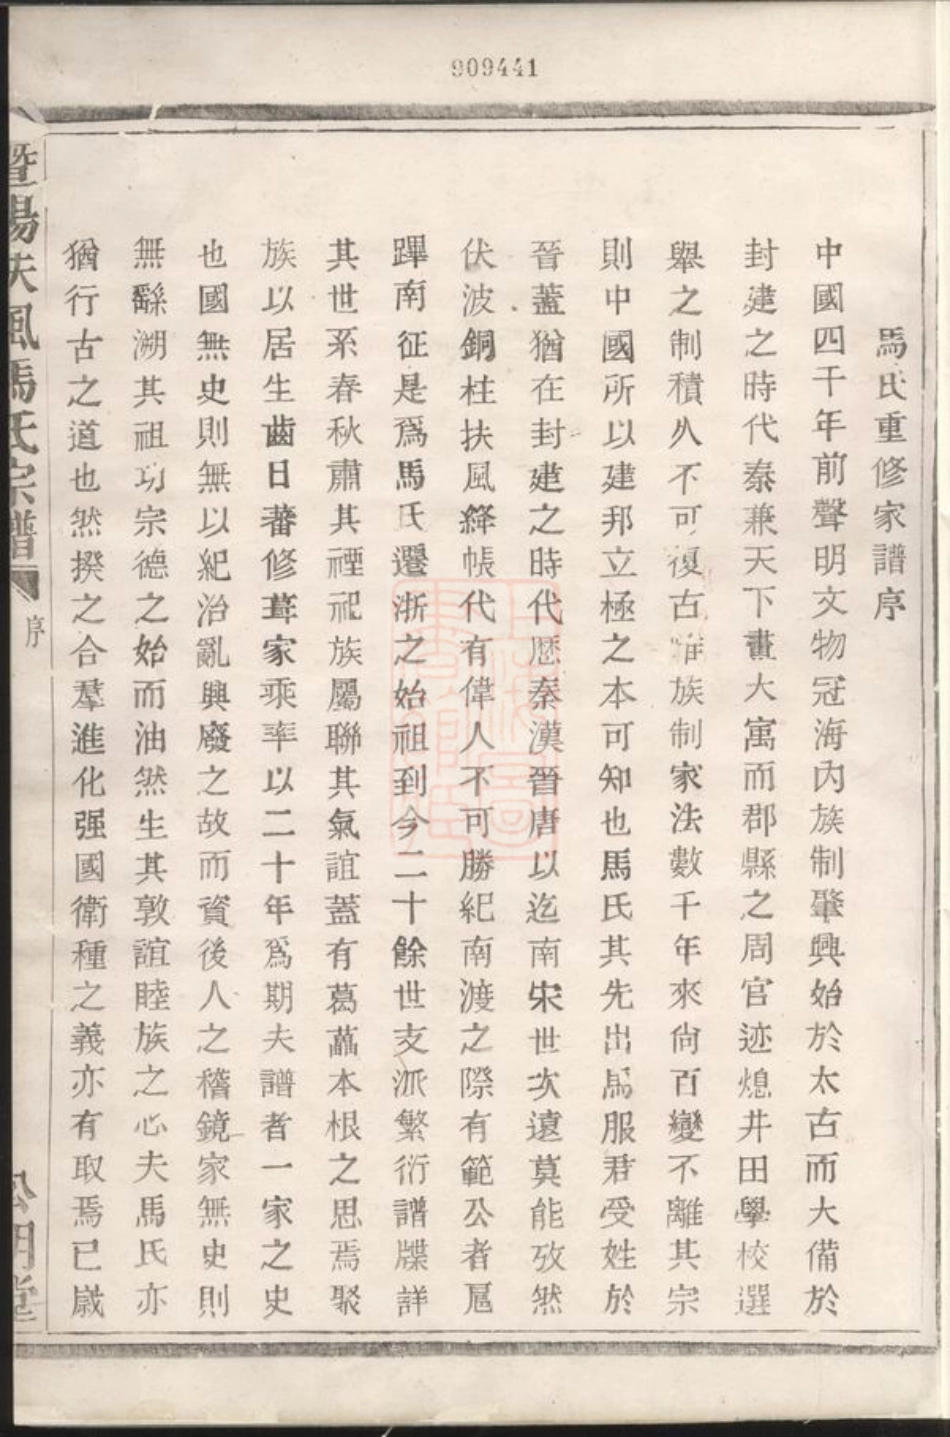 909441
馬氏重修家譜序
中國四千年前聲明文物冠海內族制肇興始於太古而大備於
封建之時代秦兼天下畫大寓而郡縣之周官迹熄井田學校選
舉之制積久不可復古惟族制家法數千年來尙百變不離其宗
則中國所以建邦立極之本可知也馬氏其先出馬服君受姓於
晉蓋猶在封建之時代歷秦漢晉唐以迄南宋世次遠莫能攷然
伏波銅柱扶風絳帳代有偉人不可勝紀南渡之際有範公者扈
蹕南征是爲馬氏遷浙之始祖到今二十餘世支派繁衍譜牒詳
其世系春秋肅其禋祀族屬聯其氣誼蓋有葛藟本根之思焉聚
族以居生齒日蕃修葺家乘率以二十年爲期夫譜者一家之史
也國無史則無以紀治亂興廢之故而資後人之稽鏡家無史則
無繇溯其祖功宗德之始而油然生其敦誼睦族之心夫馬氏亦
猶行古之道也然揆之合羣進化强國衛種之義亦有取焉已歲
暨陽扶風馬氏宗譜
序
公明堂